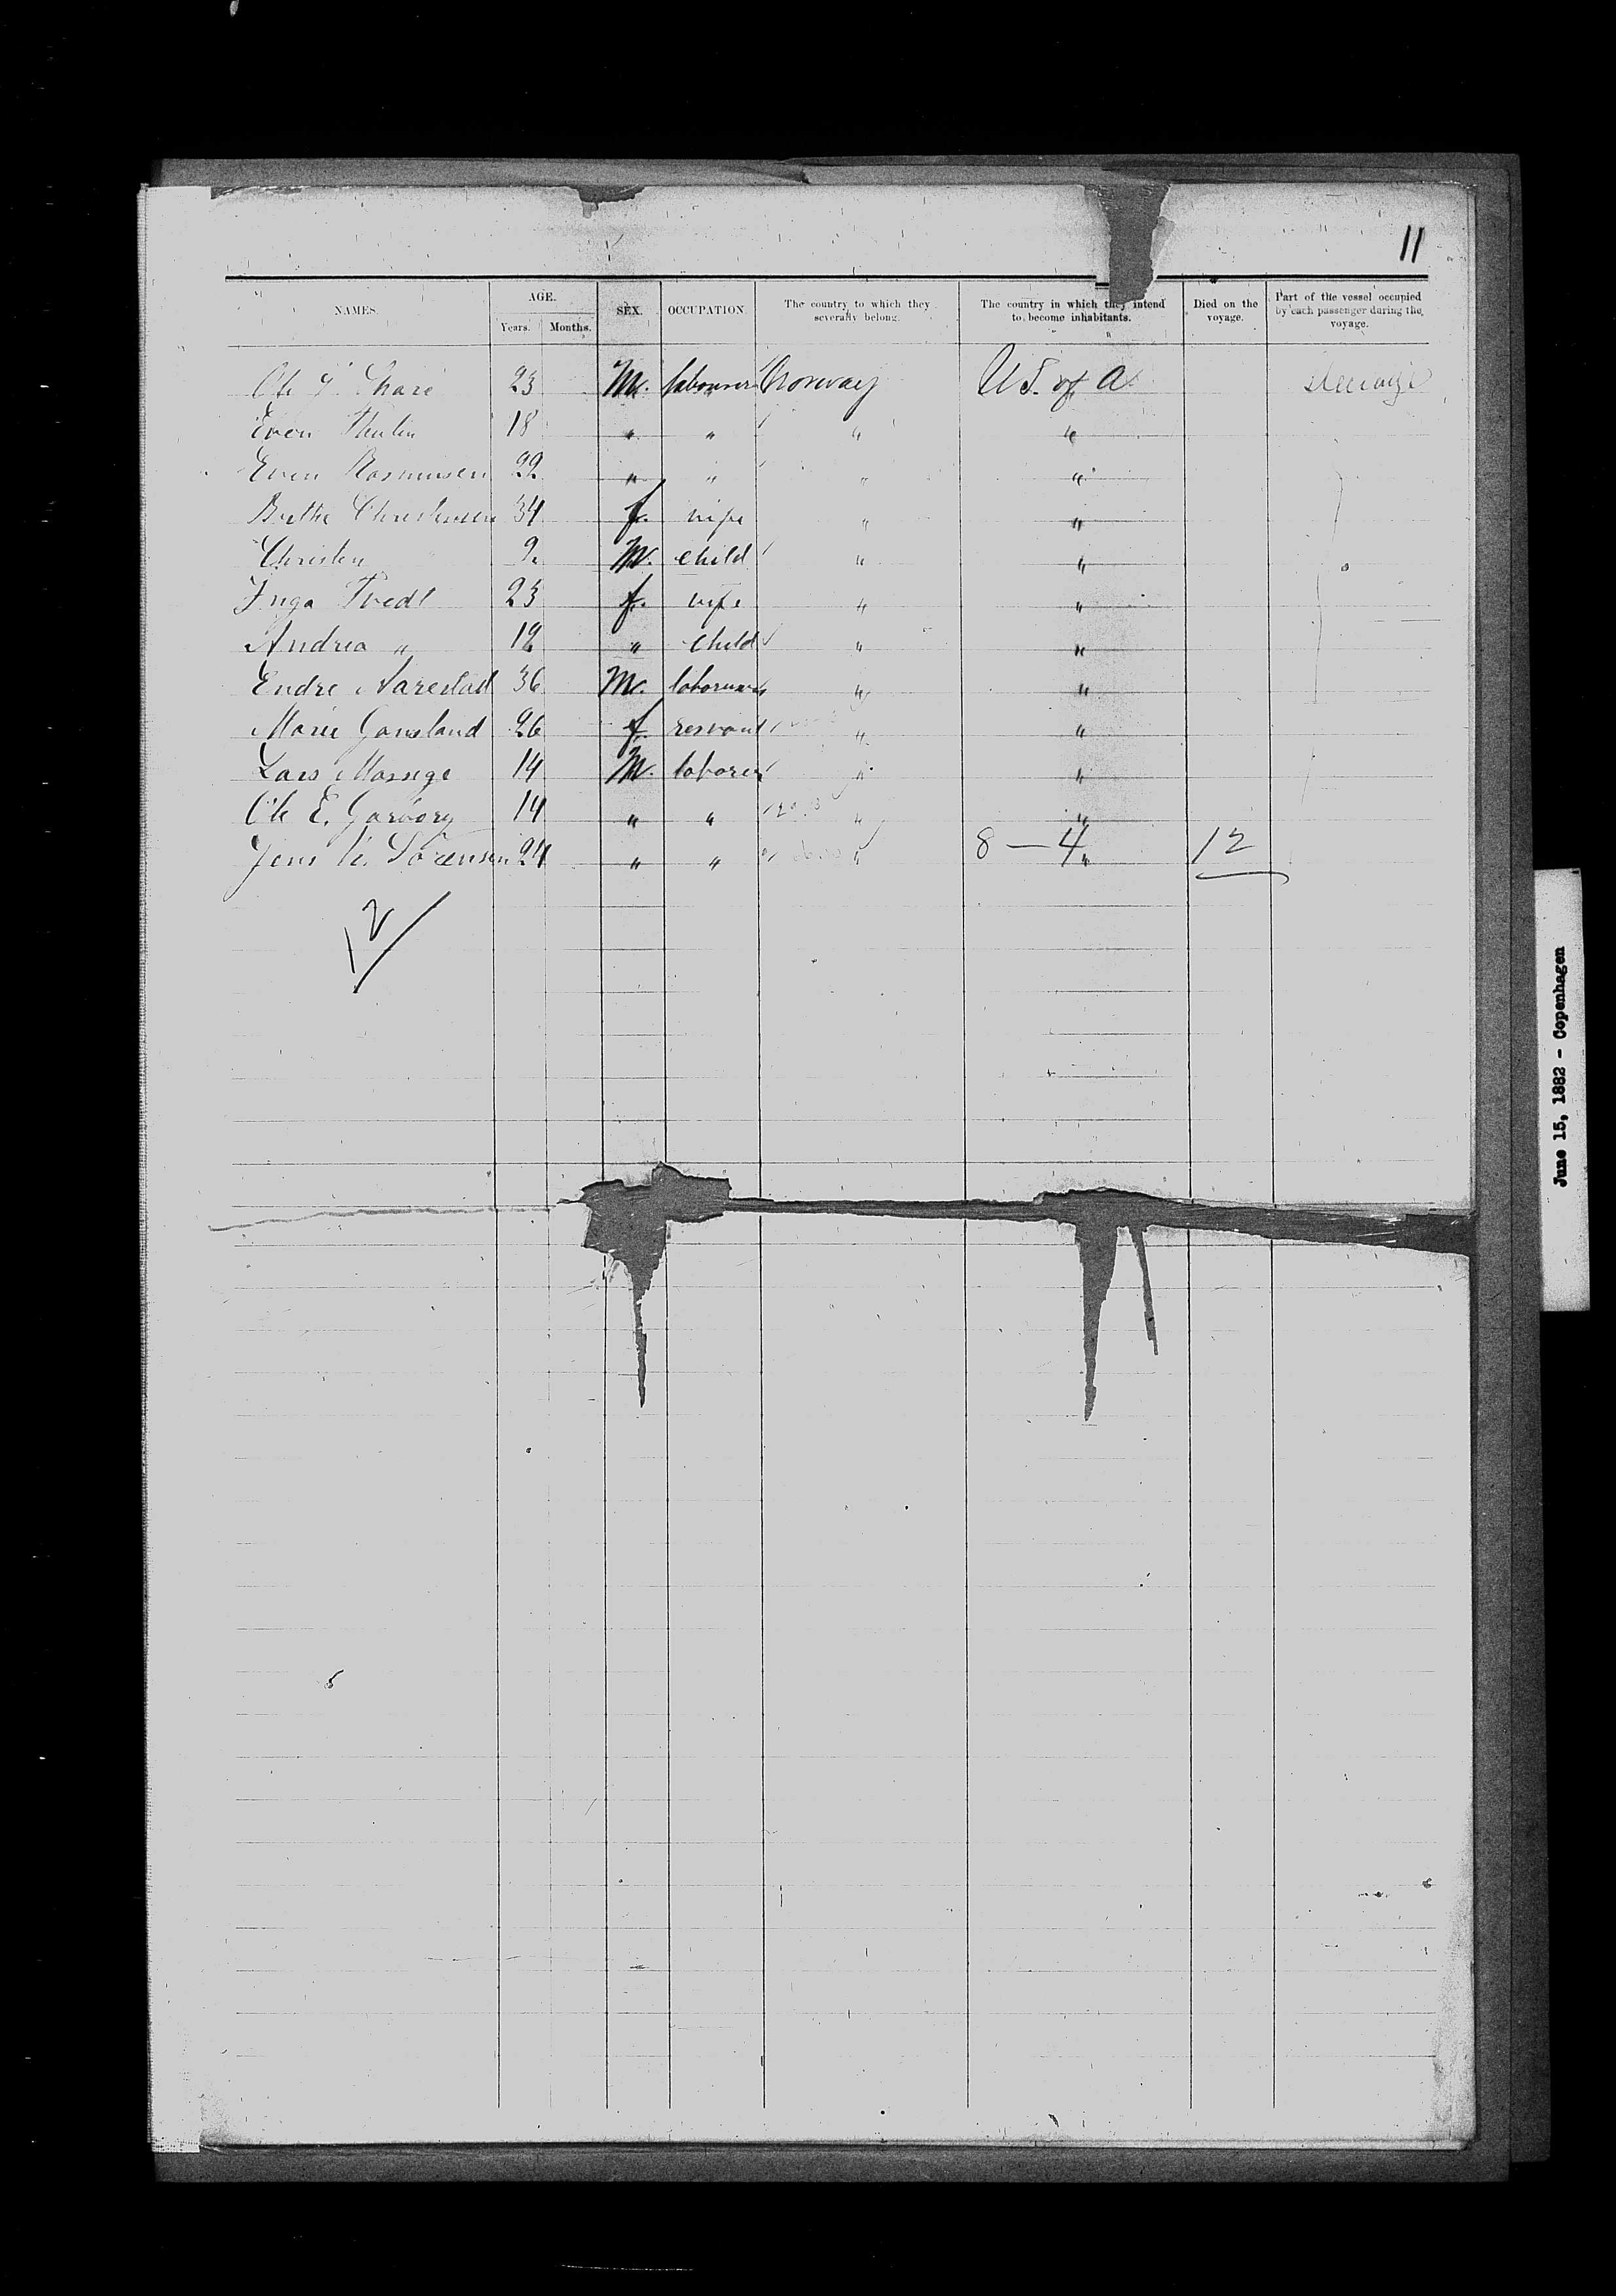 11
NAMES. AGE. Years. Months. SEX. OCCUPATION. The country to which they severally belong. The country in which they intend to become inhabitants. Died on the voyage. Part of the vessel occupied by each passenger during the voyage.
23 M. labourer Norway U.S. of A. steerage
Even 18 " " " "
Even Rasmussen 22 " " " "
Berthe Christensen 34 f. wife " "
Christen 9 M. child " "
Inga Tvedt 23 f. wife " "
Andrea " 12 " child " "
Endre Narestad 36 M. " "
Marie Gauseland 26 f. servant " "
Lars 14 M. laborer " "
Ole E. Garborg 14 " " " "
Jens Sörensen 24 " " " 8 — 4 " 12
12
June 15, 1882 - Copenhagen